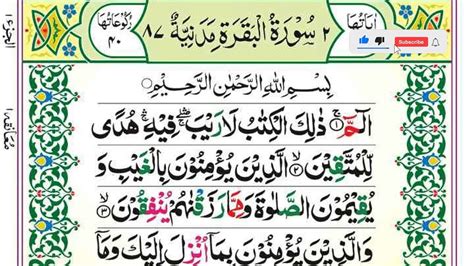 اٰیَاتُهَا ٢ سُوْرَةُ الْبَقَرَةِ مَدَنِیَّةٌ ٨٧ رُكُوْعَاتُهَا ٤٠
Subscribe
الجزء ١
معانقه ١
بِسْمِ اللّٰهِ الرَّحْمٰنِ الرَّحِیْمِ
الٓمّٓ ۚ ١ ذٰلِكَ الْكِتٰبُ لَا رَیْبَ ۛۖ فِیْهِ ۛۚ هُدًی
لِّلْمُتَّقِیْنَ ۙ ٢ الَّذِیْنَ یُؤْمِنُوْنَ بِالْغَیْبِ وَ
یُقِیْمُوْنَ الصَّلٰوةَ وَ مِمَّا رَزَقْنٰهُمْ یُنْفِقُوْنَ ۙ ٣
وَالَّذِیْنَ یُؤْمِنُوْنَ بِمَاۤ اُنْزِلَ اِلَیْكَ وَمَاۤ